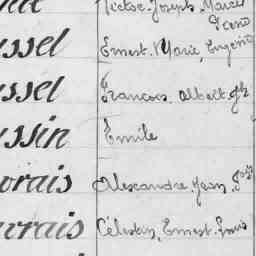 Victor, Joseph, Marcel
Pierre
ssel Ernest. Marie, Eugène
ssel François. Albert.
ussin Emile
vrais Alexandre, Jean,
uvrais Célestin, Ernest. Louis